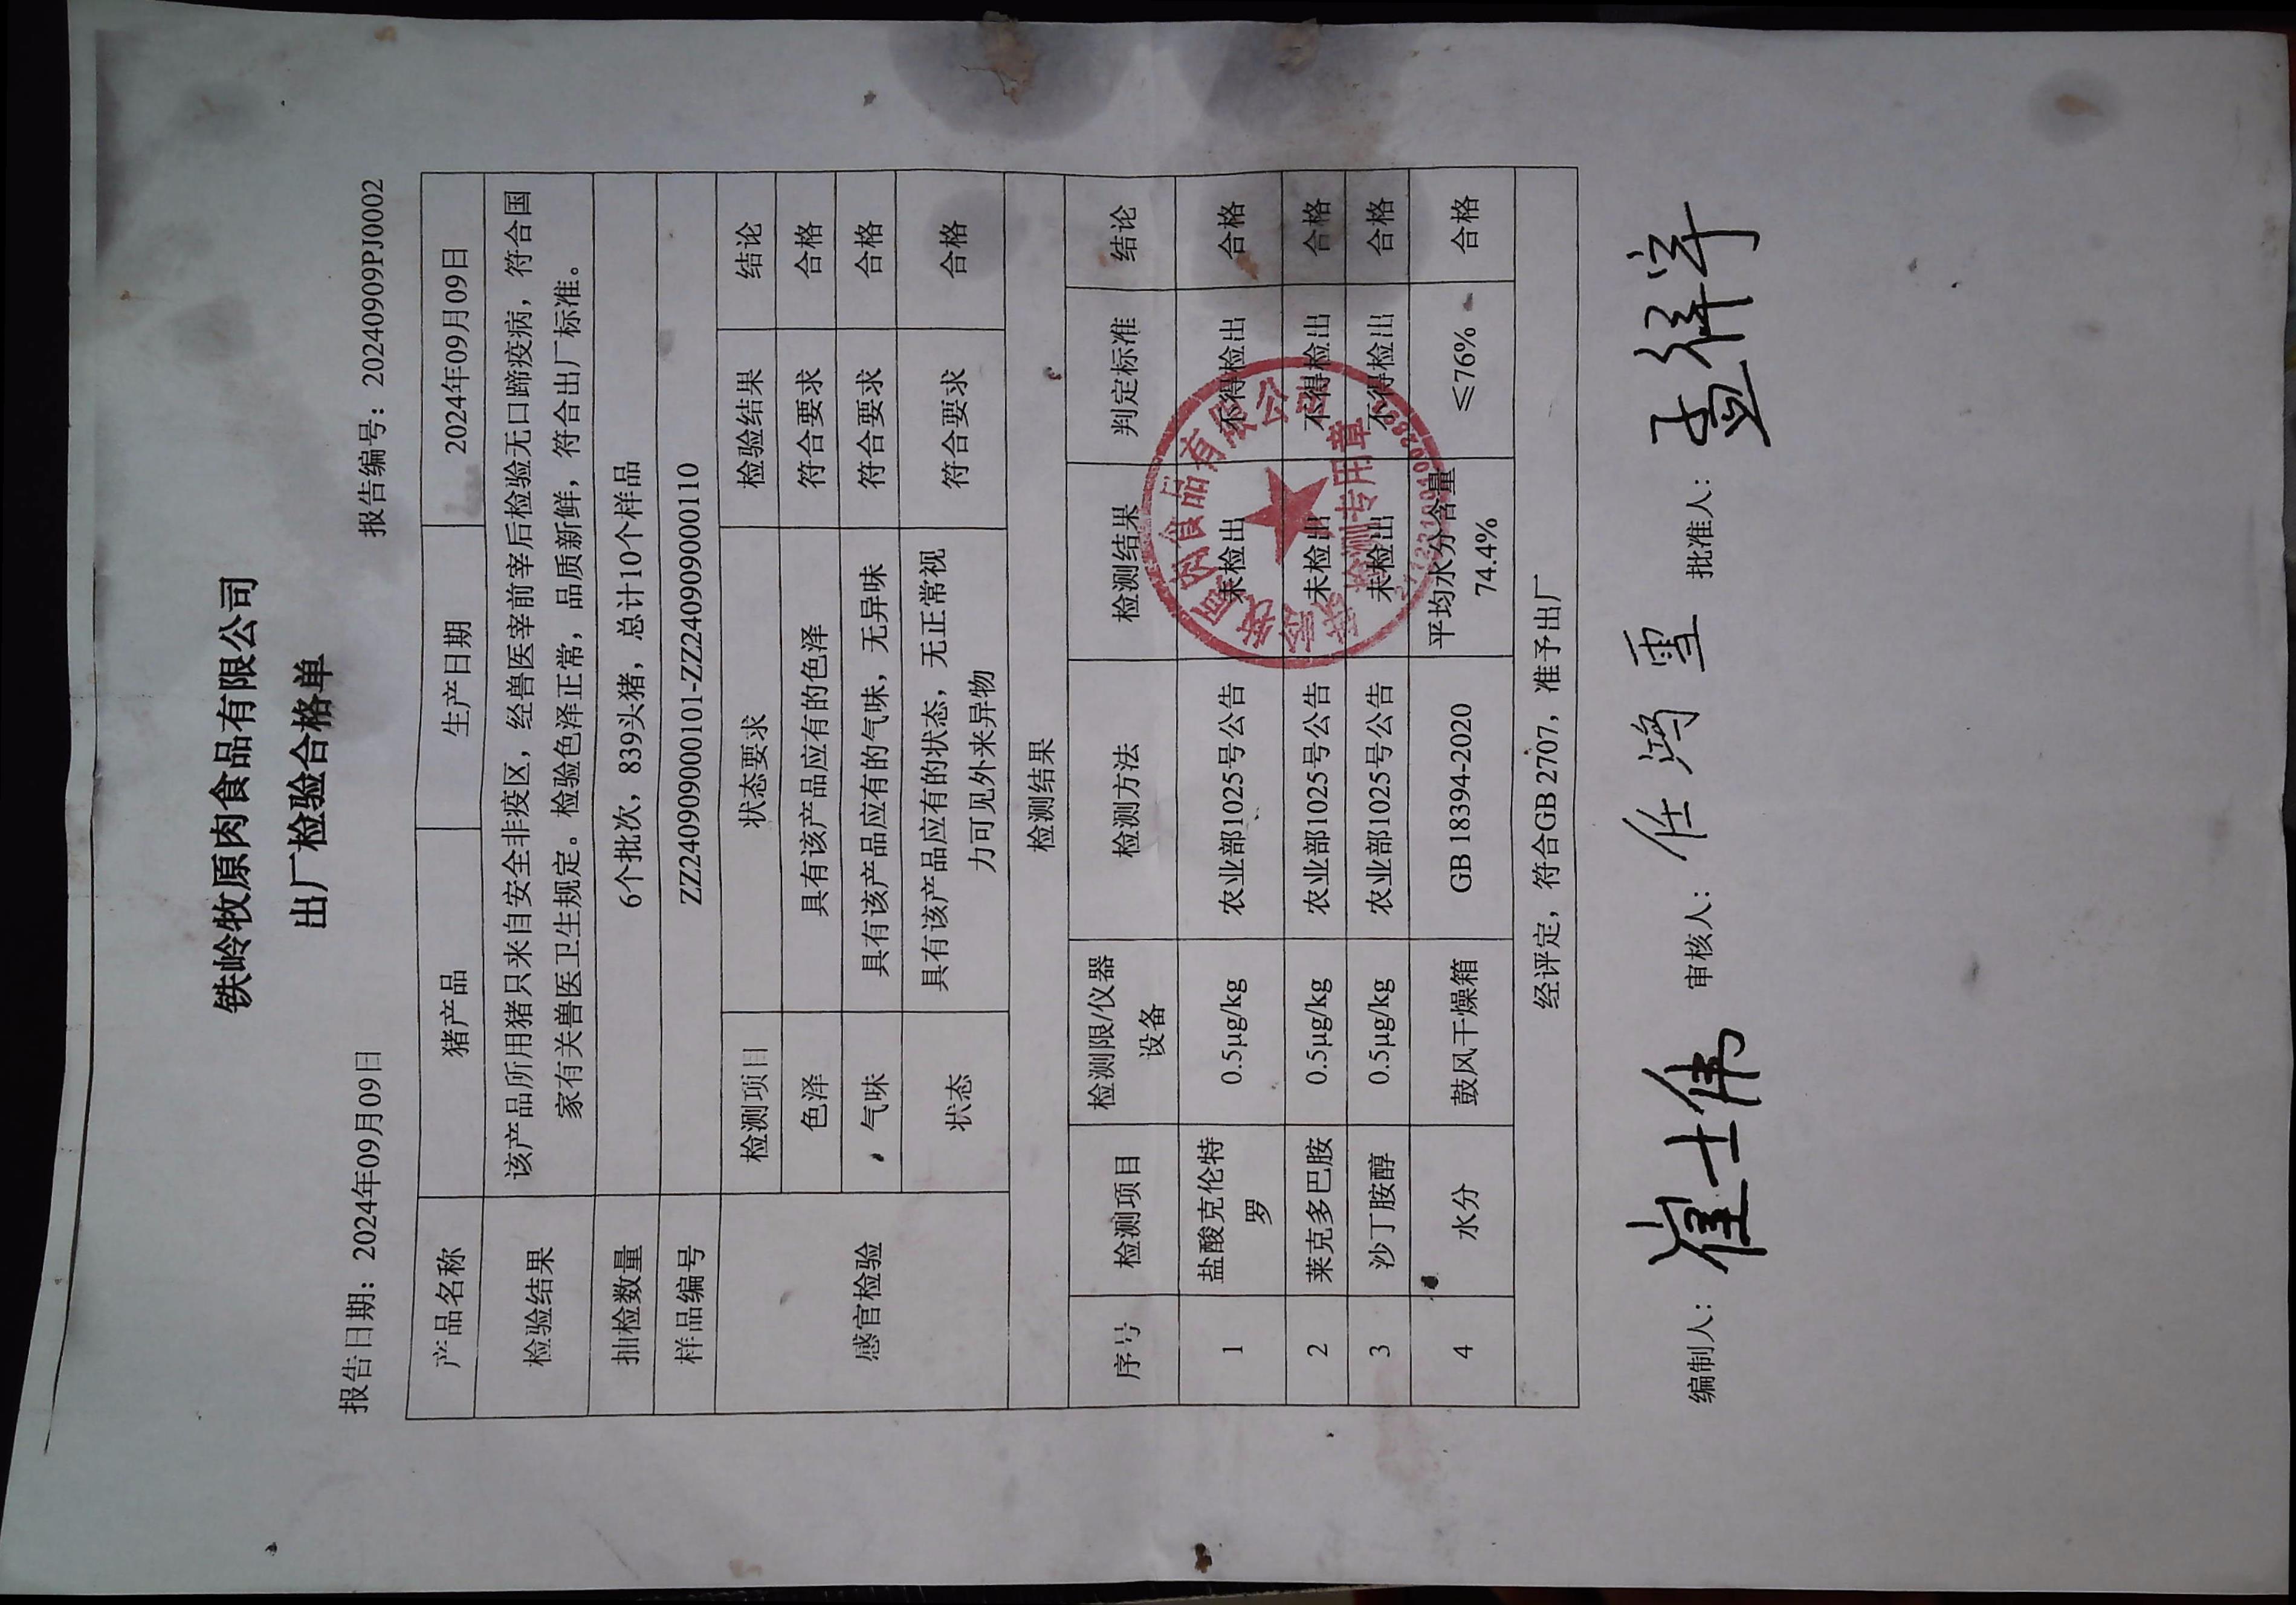 铁岭牧原肉食品有限公司
出厂检验合格单
报告日期：2024年09月09日 报告编号：20240909PJ0002
产品名称 猪产品 生产日期 2024年09月09日
检验结果 该产品所用猪只来自安全非疫区，经兽医宰前宰后检验无口蹄疫病，符合国
家有关兽医卫生规定。检验色泽正常，品质新鲜，符合出厂标准。
抽检数量 6个批次，839头猪，总计10个样品
样品编号 ZZ240909000101-ZZ240909000110
感官检验 检测项目 状态要求 检验结果 结论
色泽 具有该产品应有的色泽 符合要求 合格
气味 具有该产品应有的气味，无异味 符合要求 合格
状态 具有该产品应有的状态，无正常视
力可见外来异物 符合要求 合格
检测结果
序号 检测项目 检测限/仪器
设备 检测方法 检测结果 判定标准 结论
1 盐酸克伦特
罗 0.5μg/kg 农业部1025号公告 未检出 不得检出 合格
2 莱克多巴胺 0.5μg/kg 农业部1025号公告 未检出 不得检出 合格
3 沙丁胺醇 0.5μg/kg 农业部1025号公告 未检出 不得检出 合格
4 水分 鼓风干燥箱 GB 18394-2020 平均水分含量
74.4% ≤76% 合格
经评定，符合GB 2707，准予出厂
编制人：崔士伟 审核人：任鸿雪 批准人：孟祥宇
检测专用章